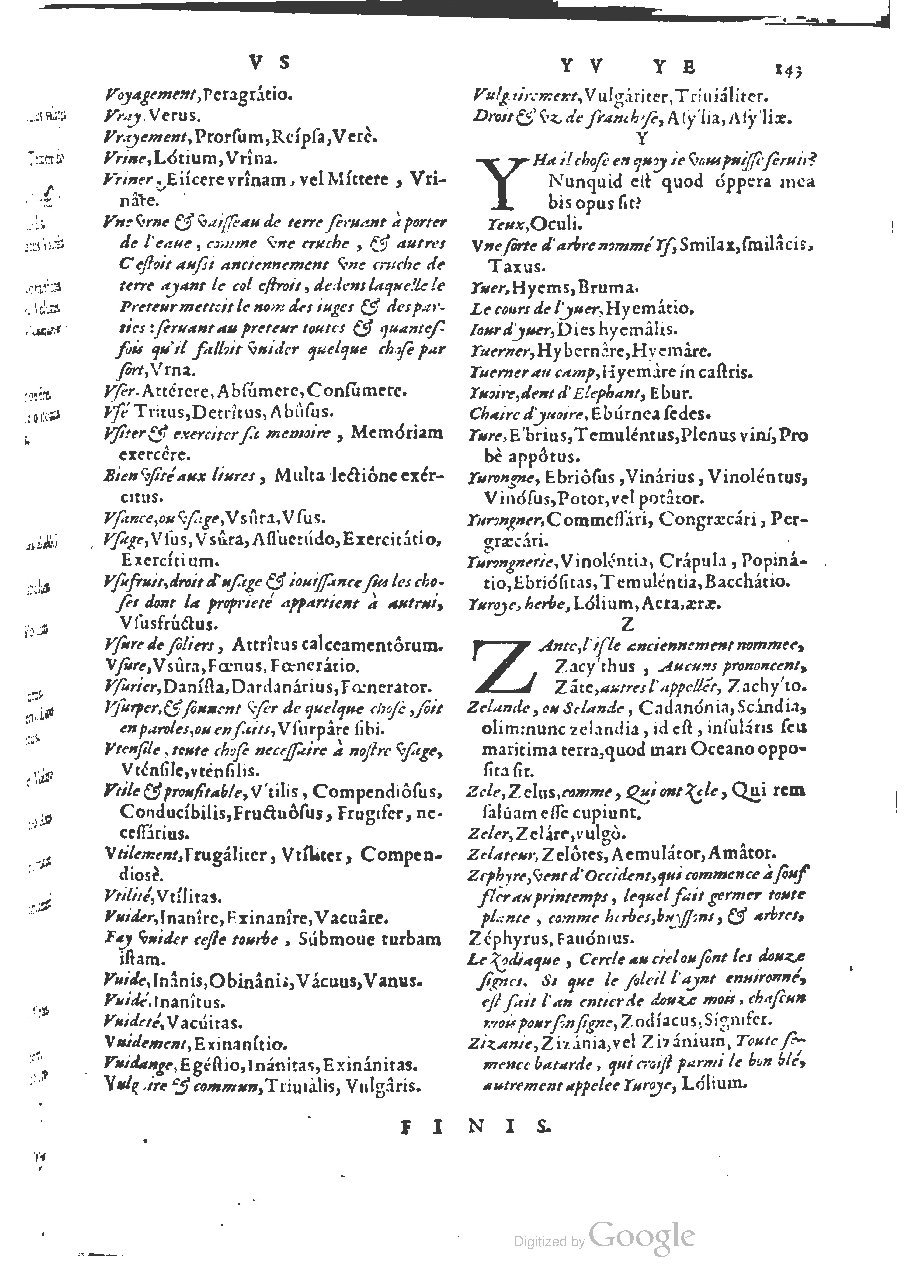 V S
Y V Y E 143
Voyagement, Peragrátio.
Vray. Verus.
Vrayement, Prorſum, Reípſa, Verè.
Vrine, Lótium, Vrîna.
Vriner, Eiícere vrînam, vel Míttere, Vri-
nâre.
Vne vrne & vaiſſeau de terre ſeruant à porter
de l'eaue, comme vne cruche, & autres
C'eſtoit auſsi anciennement vne cruche de
terre ayant le col eſtroit, dedens laquelle le
Preteur mettoit le nom des iuges & des par-
ties: ſeruant au preteur toutes & quanteſ-
fois qu'il falloit vuider quelque choſe par
ſort, Vrna.
Vſer. Attérere, Abſúmere, Conſúmere.
Vſé Tritus, Detrîtus, Abûſus.
Vſiter & exerciter ſa memoire, Memóriam
exercêre.
Bien vſité aux liures, Multa lectiône exér-
citus.
Vſance, ou vſage, Vsûra, Vſus.
Vſage, Vſus, Vsûra, Aſſuetúdo, Exercitátio,
Exercítium.
Vſufruit, droit d'uſage & iouiſſance ſus les cho-
ſes dont la proprieté appartient à autrui,
Vſusfrúctus.
Vſure de ſoliers, Attrîtus calceamentôrum.
Vſure, Vsûra, Fœnus, Fœnerátio.
Vſurier, Daníſta, Dardanárius, Fœnerator.
Vſurper, & ſouuent vſer de quelque choſe, ſoit
en paroles, ou en faits, Vſurpâre ſibi.
Vtenſile, toute choſe neceſſaire à noſtre vſage,
Vténſile, vténſilis.
Vtile & proufitable, V'tilis, Compendiôſus,
Conducíbilis, Fructuôſus, Frugifer, ne-
ceſſárius.
Vtilement, Frugáliter, Vtíliter, Compen-
diosè.
Vtilité, Vtílitas.
Vuider, Inanîre, Exinanîre, Vacuâre.
Fay vuider ceſte tourbe, Súbmoue turbam
iſtam.
Vuide, Inânis, Obinânis, Vácuus, Vanus.
Vuidé. Inanîtus.
Vuideté, Vacúitas.
Vuidement, Exinanítio.
Vuidange, Egéſtio, Inánitas, Exinánitas.
Vulgaire & commun, Triuiàlis, Vulgâris.
Vulgairement, Vulgáriter, Triuiáliter.
Droit & vz de franchiſe, Aſy'lia, Aſy'liæ.
Y
YHa il choſe en quoy ie vous puiſſe ſeruir?
Nunquid eſt quod óppera mea
bis opus ſit?
Yeux, Oculi.
Vne ſorte d'arbre nommé Yf, Smilax, ſmilâcis,
Taxus.
Yuer, Hyems, Bruma.
Le cours de l'yuer, Hyemátio.
Iour d'yuer, Dies hyemâlis.
Yuerner, Hybernâre, Hyemâre.
Yuerner au camp, Hyemâre in caſtris.
Yuoire, dent d'Elephant, Ebur.
Chaire d'yuoire, Ebúrnea ſedes.
Yure, E'brius, Temuléntus, Plenus viní, Pro
bè appôtus.
Yurongne, Ebriôſus, Vinárius, Vinoléntus,
Vinóſus, Potor, vel potâtor.
Yurongner, Commeſſári, Congræcári, Per-
græcári.
Yurongnerie, Vinoléntia, Crápula, Popiná-
tio, Ebriósitas, Temuléntia, Bacchátio.
Yuroye, herbe, Lólium, Aera, æræ.
Z
ZAnte, l'iſle anciennement nommee,
Zacy'thus, Aucuns prononcent,
Zâte, autres l'appellẽt, Zachy'to.
Zelande, ou Selande, Cadanónia, Scándia,
olim: nunc zelandia, id eſt, inſuláris ſeu
maritima terra, quod mari Oceano oppo-
ſita ſit.
Zele, Zelus, comme, Qui ont zele, Qui rem
ſalúam eſſe cupiunt.
Zeler, Zeláre, vulgò.
Zelateur, Zelôtes, Aemulátor, Amâtor.
Zephyre, vent d'Occident, qui commence à ſouf
fler au printemps, lequel fait germer toute
plante, comme herbes, buyſſons, & arbres,
Zéphyrus, Fauónius.
Le zodiaque, Cercle au ciel ou ſont les douze
ſignes. Si que le ſoleil l'aynt enuironné,
eſt fait l'an entier de douze mois, chaſcun
mois pour ſon ſigne, Zodíacus, Sígnifer.
Zizanie, Zizánia, vel Zizánium, Toute ſe-
mence batarde, qui croiſt parmi le bon blé,
autrement appelee Yuroye, Lólium.
F I N I S.
Digitized by Google